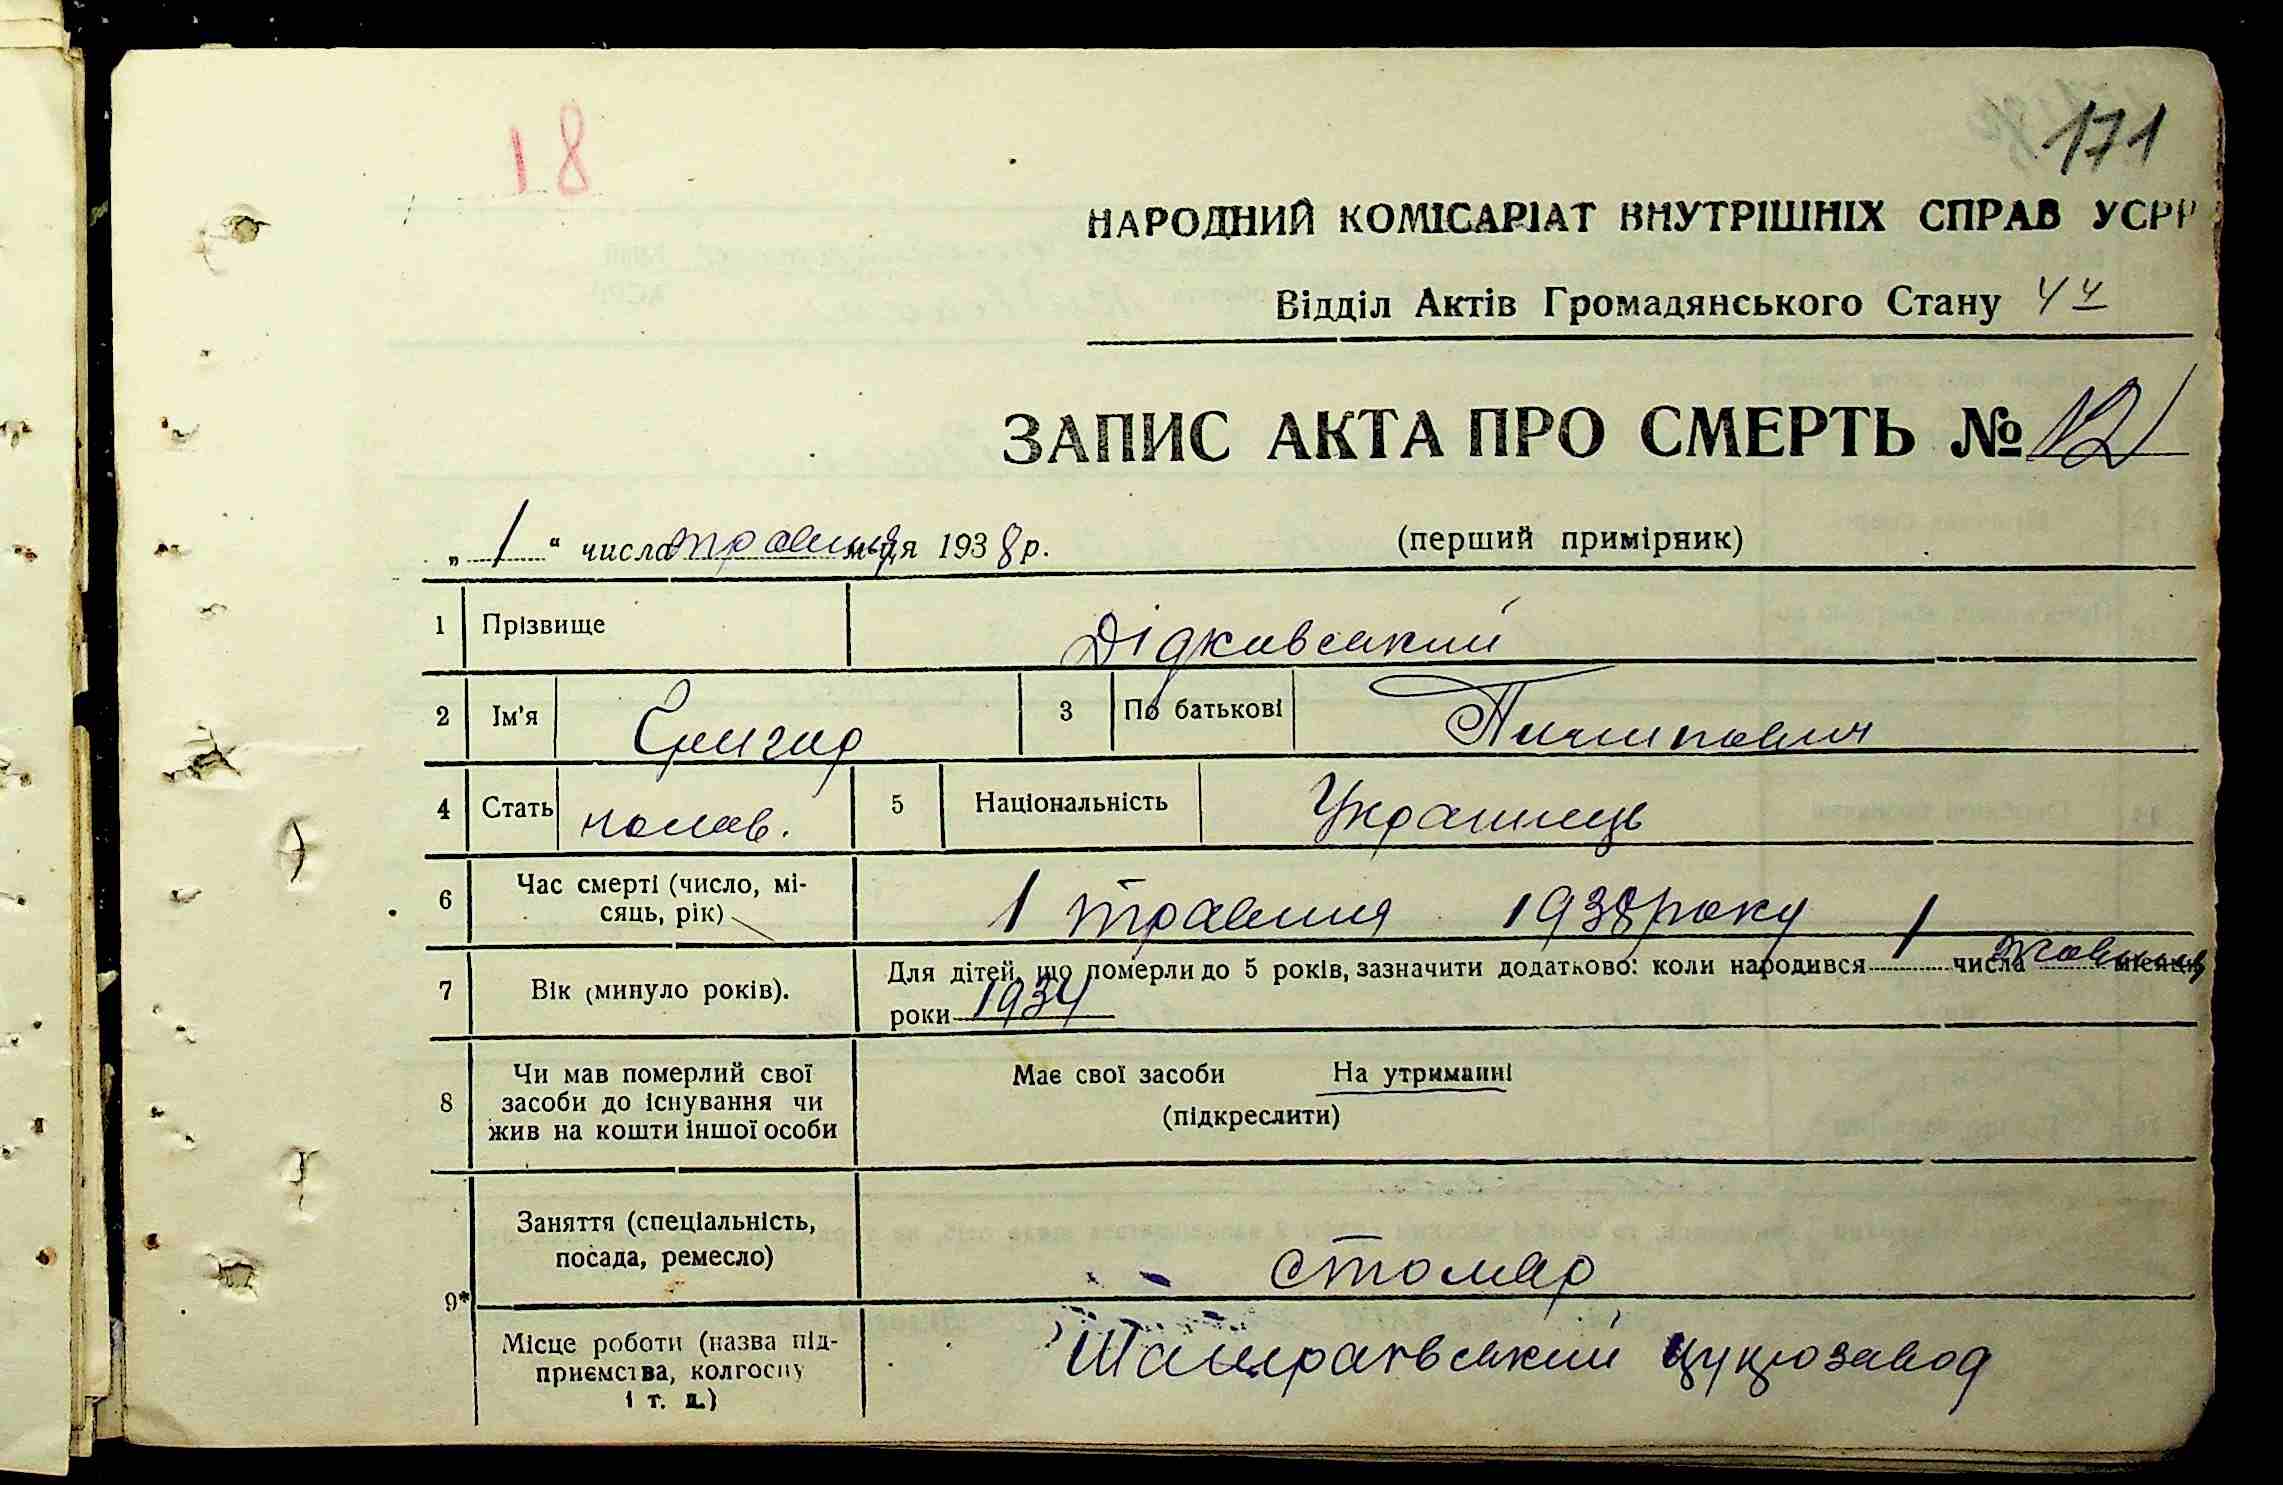 18
171
НАРОДНИЙ КОМІСАРІАТ ВНУТРІШНІХ СПРАВ УСРР
Відділ Актів Громадянського Стану
ЗАПИС АКТА ПРО СМЕРТЬ № 12
„ 1 “ числа травня м-ця 1938 р. (перший примірник)
1 Прізвище Дідковський
2 Ім'я 3 По батькові
4 Стать 5 Національність Українець
6 Час смерті (число, мі-
сяць, рік) 1 травня 1938 року
7 Вік (минуло років). Для дітей, що померли до 5 років, зазначити додатково: коли народився 1 числа місяця
роки 1934
8 Чи мав померлий свої
засоби до існування чи
жив на кошти іншої особи
Має свої засоби На утриманні
(підкреслити)
9* Заняття (спеціальність,
посада, ремесло) столяр
Місце роботи (назва під-
приємства, колгоспу
і т. д.) цукрозавод